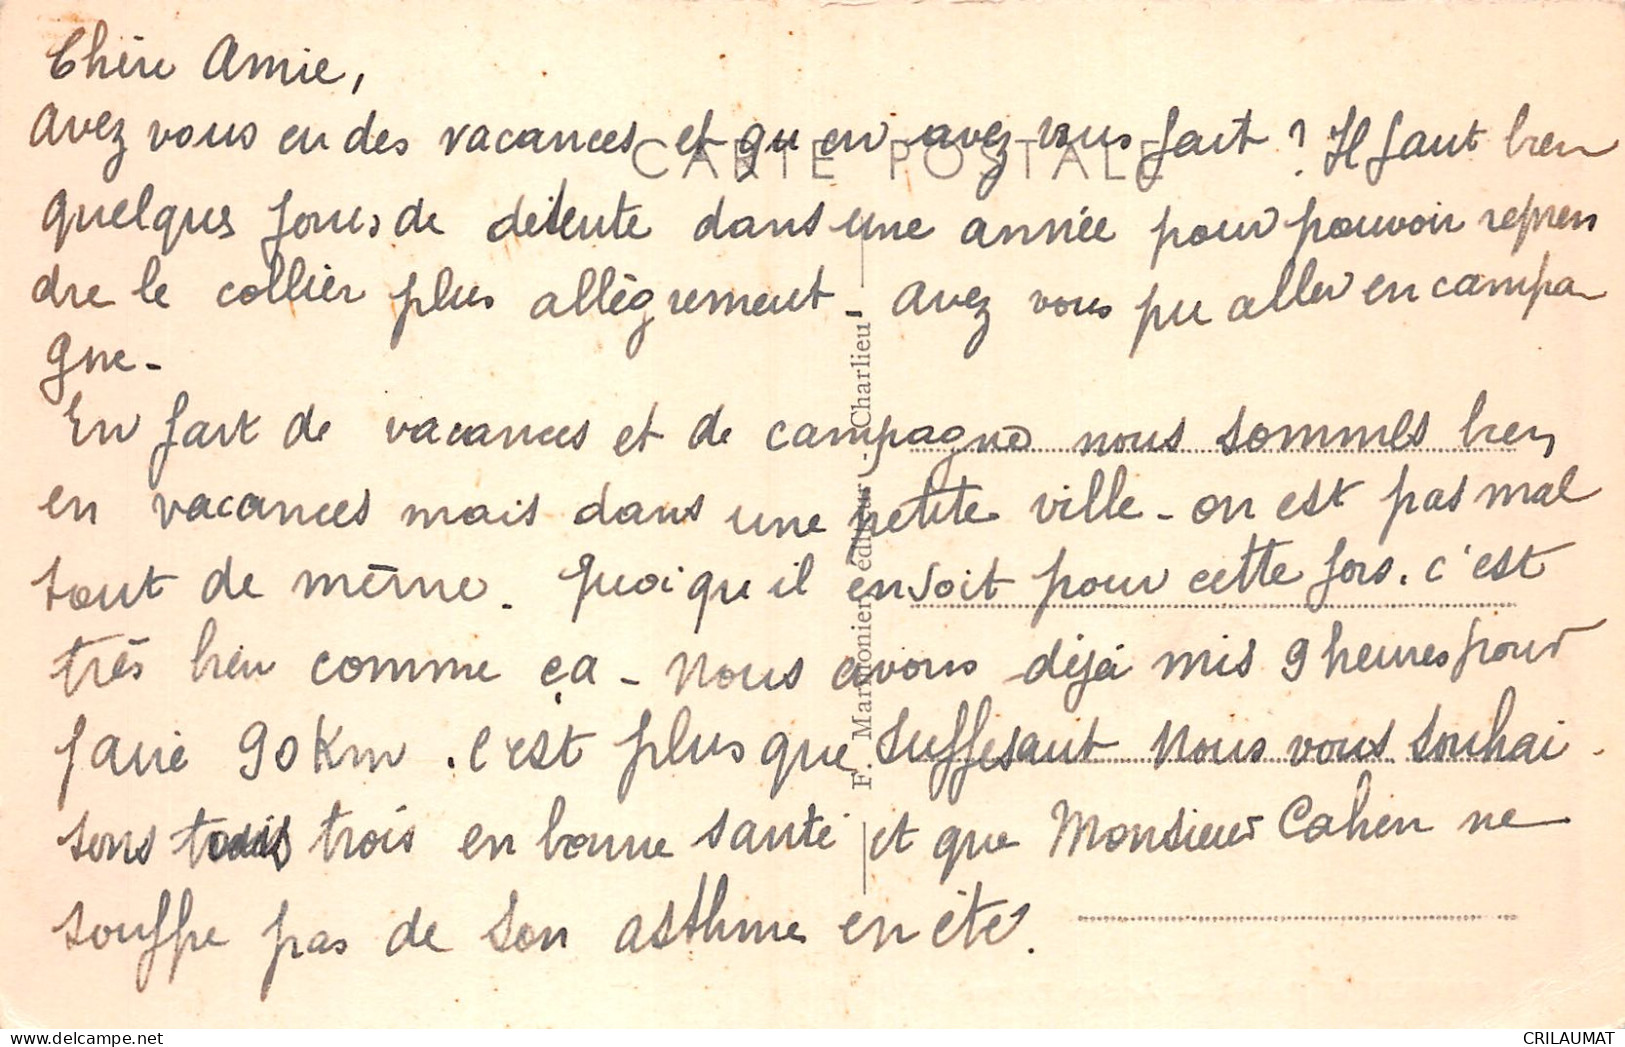 Chère Amie,
Avez vous eu des vacances et qu'en avez vous fait ? Il faut bien
quelques jours de détente dans une année pour pouvoir repren
dre le collier plus allègrement - avez vous pu aller en campa-
gne -
En fait de vacances et de campagne nous sommes bien
en vacances mais dans une petite ville - on est pas mal
tout de même. Quoiqu'il en soit pour cette fois. c'est
très bien comme ça - Nous avons déjà mis 9 heures pour
faire 90 Km. c'est plus que suffisant Nous vous souhai-
tons tous trois en bonne santé et que Monsieur Cahen ne
souffre pas de son asthme en été.
CARTE POSTALE
F. Marmonier, éditeur - Charlieu
CRILAUMAT